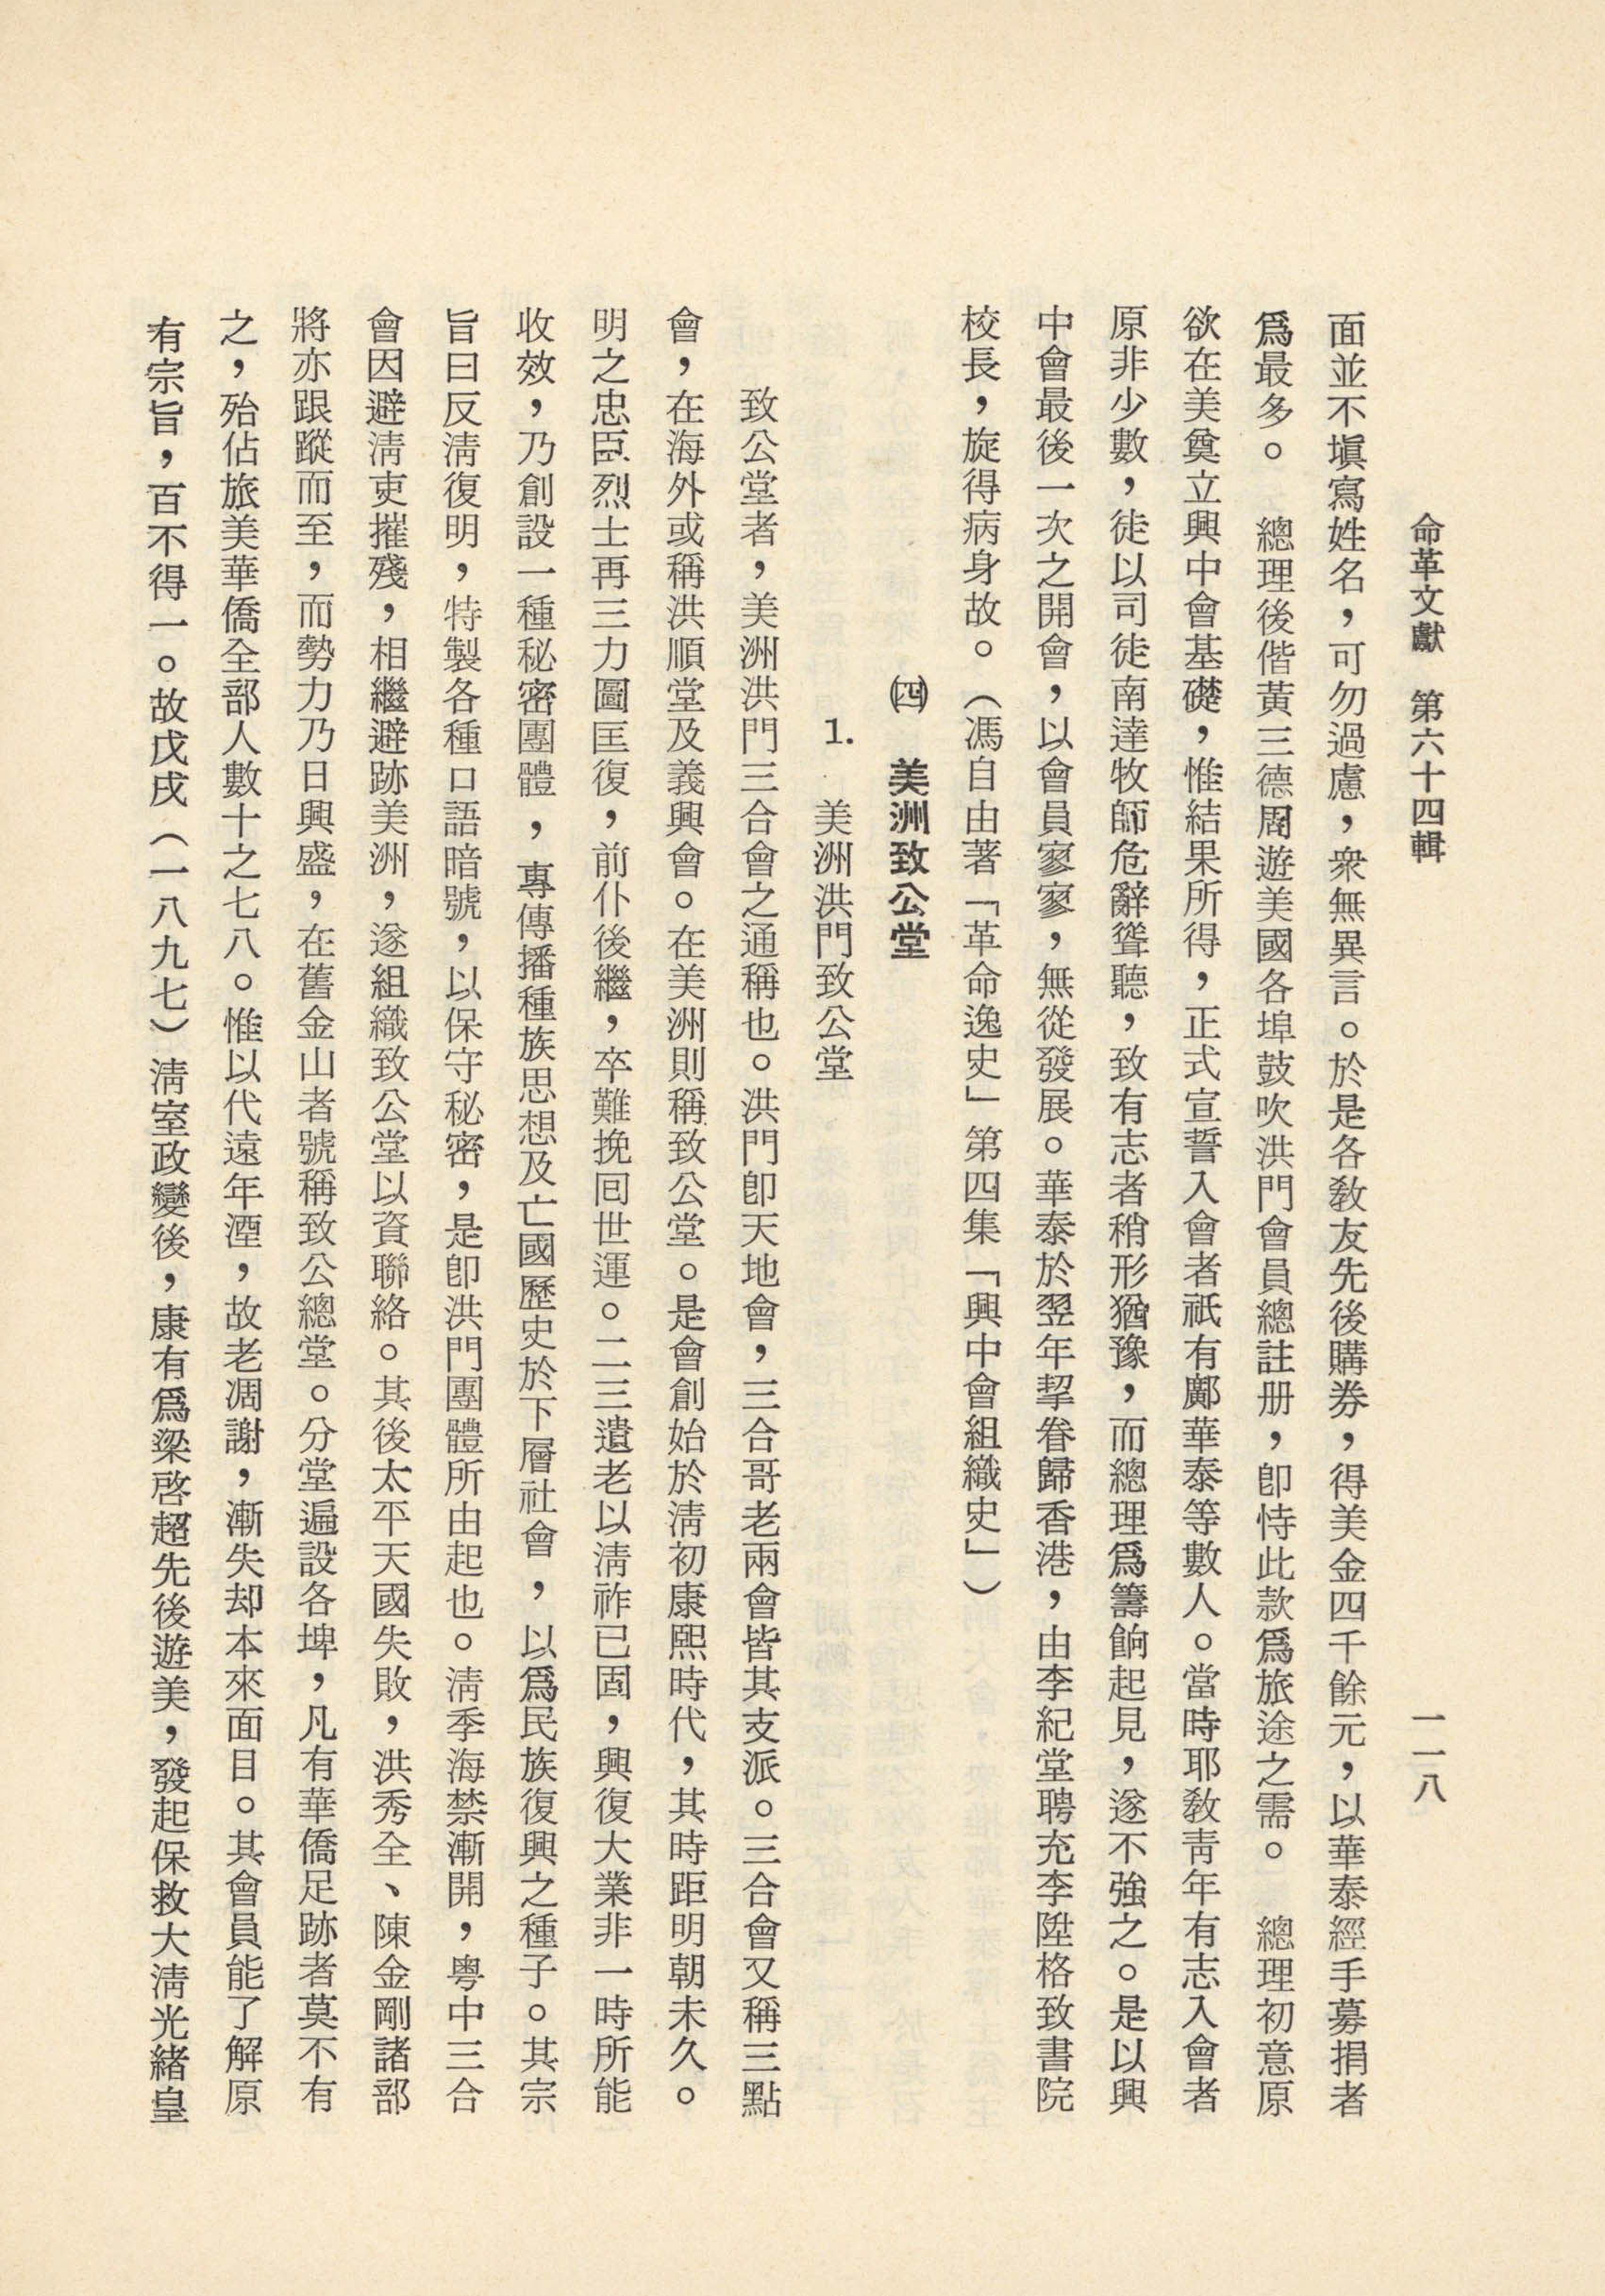 命革文獻　第六十四輯　一一八
面並不塡寫姓名，可勿過慮，衆無異言。於是各敎友先後購券，得美金四千餘元，以華泰經手募捐者
爲最多。　總理後偕黃三德周遊美國各埠鼓吹洪門會員總註册，卽恃此款爲旅途之需。　總理初意原
欲在美奠立興中會基礎，惟結果所得，正式宣誓入會者祇有鄺華泰等數人。當時耶敎靑年有志入會者
原非少數，徒以司徒南達牧師危辭聳聽，致有志者稍形猶豫，而總理爲籌餉起見，遂不強之。是以興
中會最後一次之開會，以會員寥寥，無從發展。華泰於翌年挈眷歸香港，由李紀堂聘充李陞格致書院
校長，旋得病身故。（馮自由著「革命逸史」第四集「興中會組織史」）
㈣　美洲致公堂
1.　美洲洪門致公堂
致公堂者，美洲洪門三合會之通稱也。洪門卽天地會，三合哥老兩會皆其支派。三合會又稱三點
會，在海外或稱洪順堂及義興會。在美洲則稱致公堂。是會創始於淸初康熙時代，其時距明朝未久。
明之忠臣烈士再三力圖匡復，前仆後繼，卒難挽囘世運。二三遺老以淸祚已固，興復大業非一時所能
收效，乃創設一種秘密團體，專傳播種族思想及亡國歷史於下層社會，以爲民族復興之種子。其宗
旨曰反淸復明，特製各種口語暗號，以保守秘密，是卽洪門團體所由起也。淸季海禁漸開，粵中三合
會因避淸吏摧殘，相繼避跡美洲，遂組織致公堂以資聯絡。其後太平天國失敗，洪秀全、陳金剛諸部
將亦跟蹤而至，而勢力乃日興盛，在舊金山者號稱致公總堂。分堂遍設各埠，凡有華僑足跡者莫不有
之，殆佔旅美華僑全部人數十之七八。惟以代遠年湮，故老凋謝，漸失却本來面目。其會員能了解原
有宗旨，百不得一。故戊戌（一八九七）淸室政變後，康有爲梁啓超先後遊美，發起保救大淸光緒皇